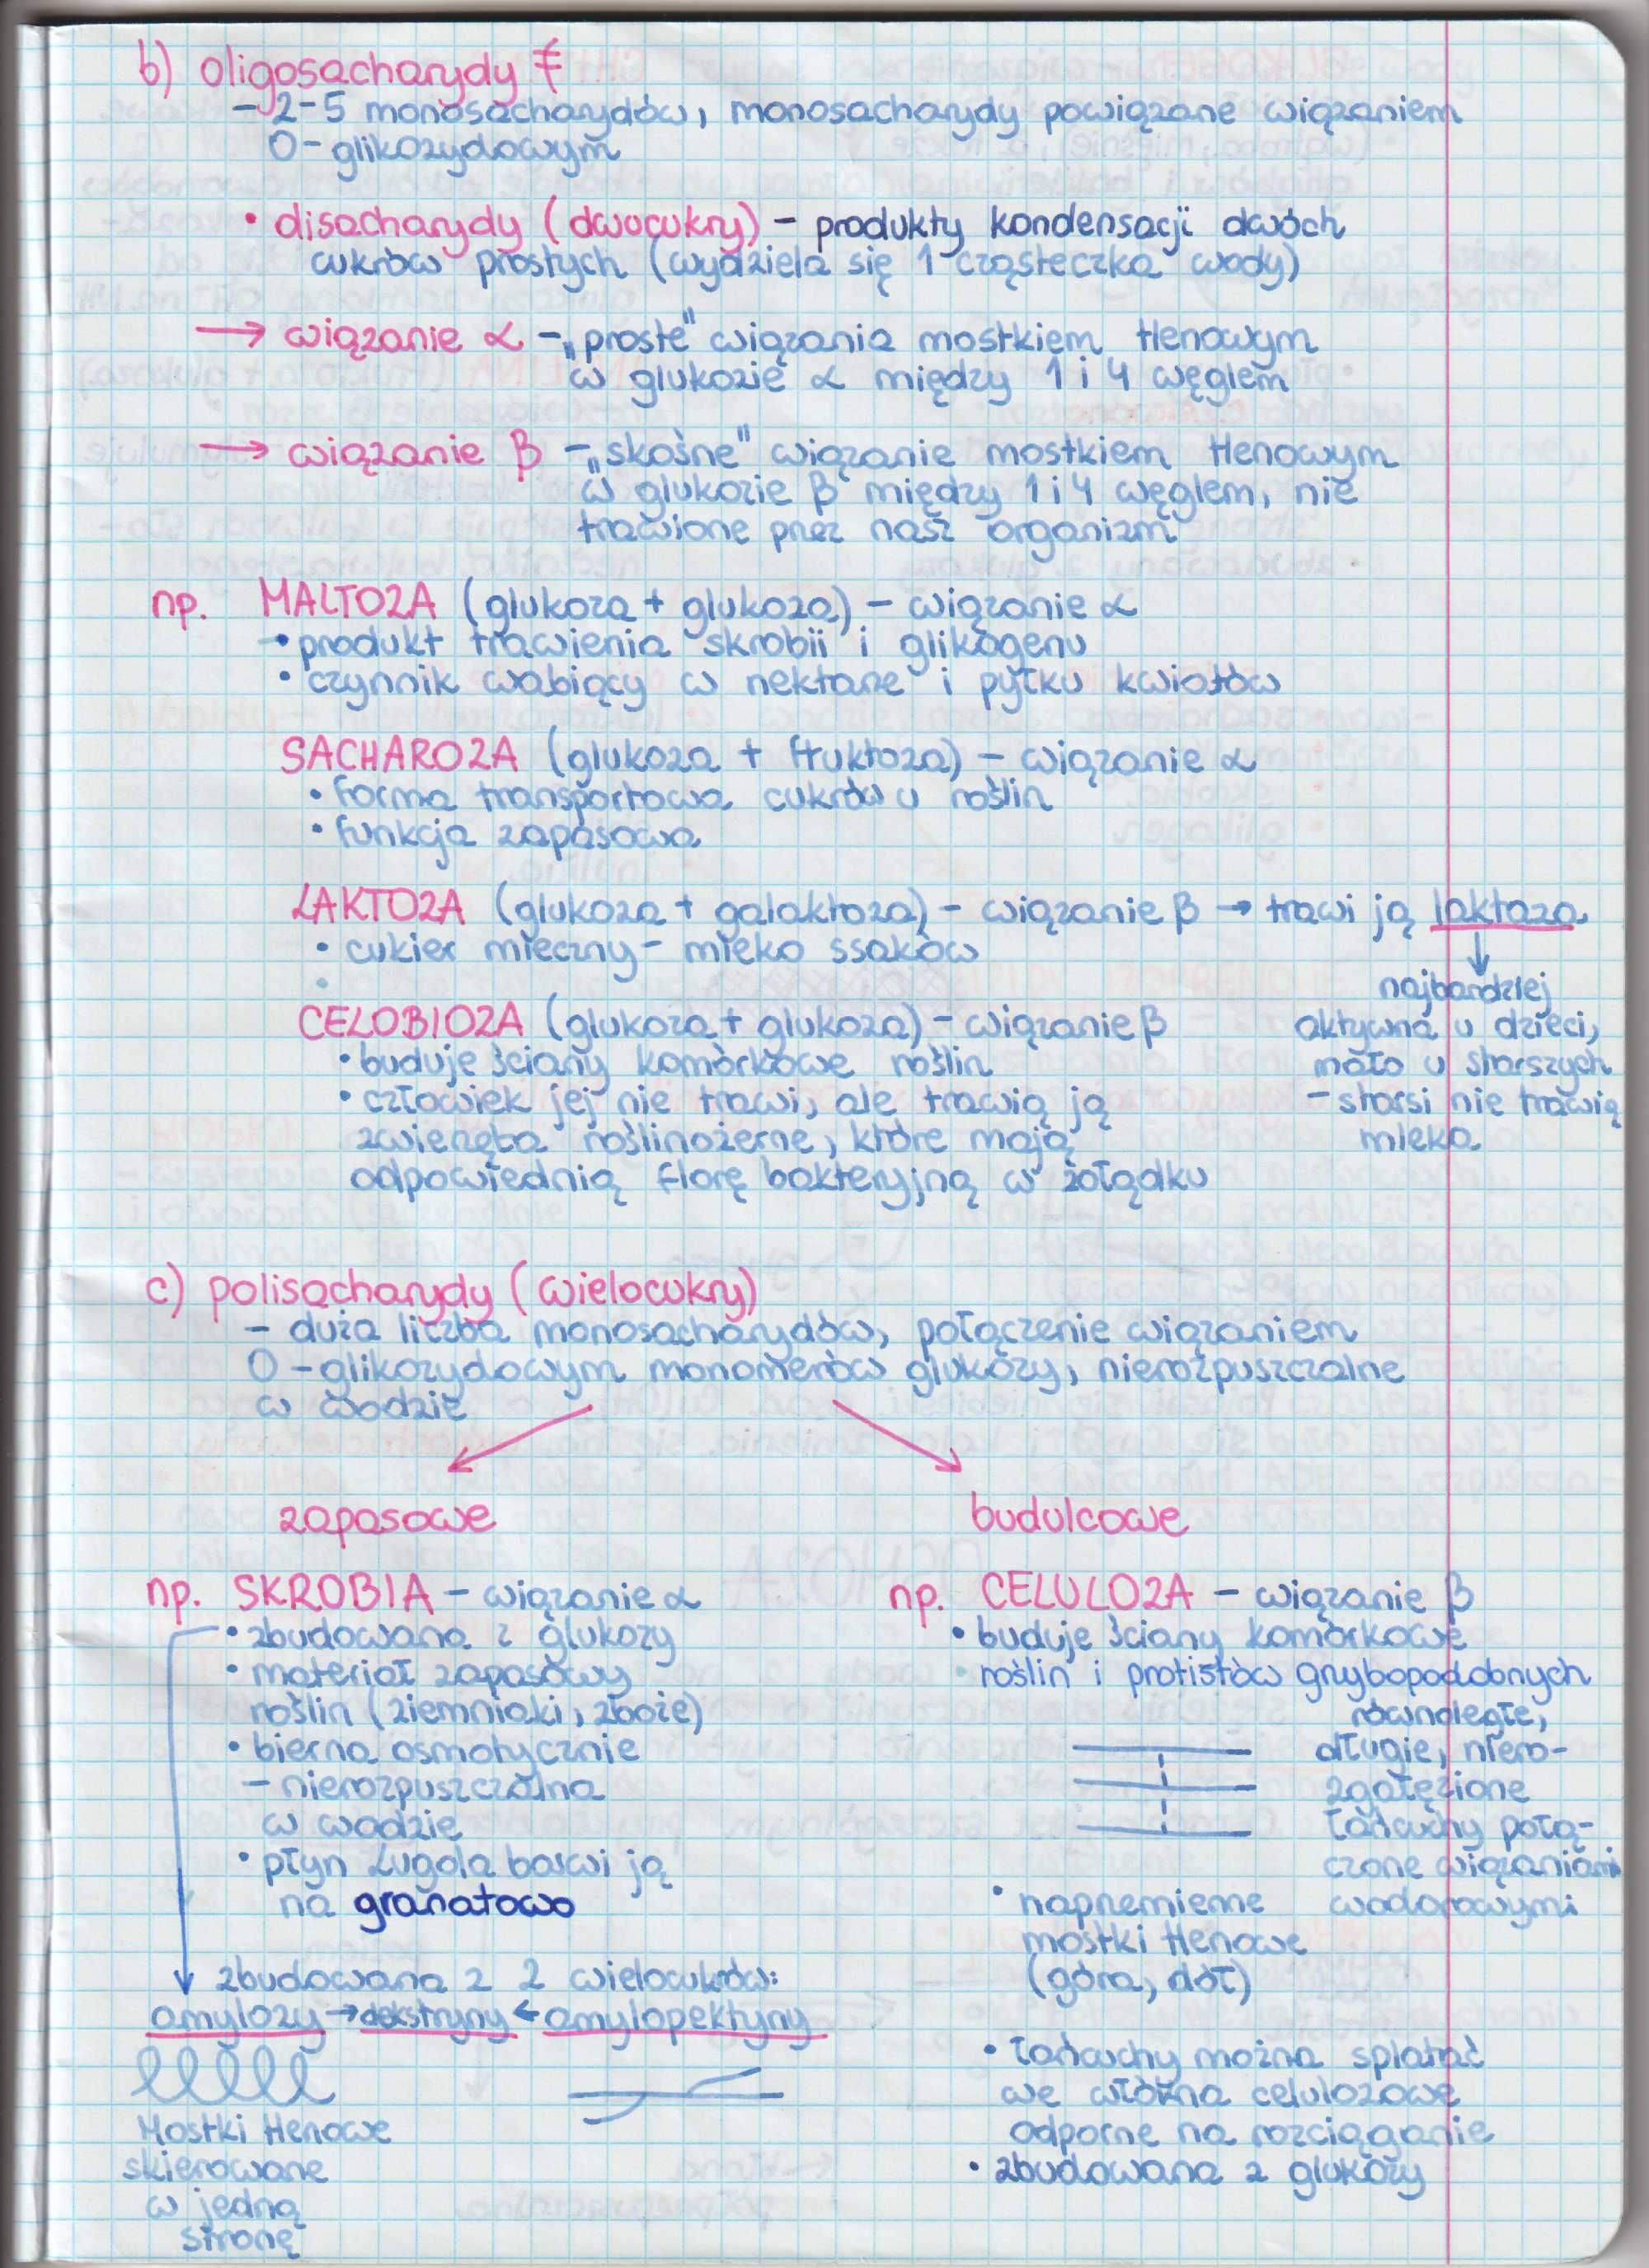 b) oligosacharydy
- 2-5 monosacharydów, monosacharydy powiązane wiązaniem
O-glikozydowym
• disacharydy (dwucukry) - produkty kondensacji dwóch
cukrów prostych (wydziela się 1 cząsteczka wody)
→ wiązanie α - „proste" wiązania mostkiem tlenowym
w glukozie α między 1 i 4 węglem
→ wiązanie β - „skośne" wiązanie mostkiem tlenowym
w glukozie β między 1 i 4 węglem, nie
trawione przez nasz organizm
np. MALTOZA (glukoza + glukoza) - wiązanie α
• produkt trawienia skrobii i glikogenu
• czynnik wabiący w nektarze i pyłku kwiatów
SACHAROZA (glukoza + fruktoza) - wiązanie α
• forma transportowa cukrów u roślin
• funkcja zapasowa
LAKTOZA (glukoza + galaktoza) - wiązanie β → trawi ją laktaza
• cukier mleczny - mleko ssaków
↓
najbardziej
aktywna u dzieci,
mało u starszych
- starsi nie trawią
mleka
CELOBIOZA (glukoza + glukoza) - wiązanie β
• buduje ściany komórkowe roślin
• człowiek jej nie trawi, ale trawią ją
zwierzęta roślinożerne, które mają
odpowiednią florę bakteryjną w żołądku
c) polisacharydy (wielocukry)
- duża liczba monosacharydów, połączenie wiązaniem
O-glikozydowym monomerów glukozy, nierozpuszczalne
w wodzie
zapasowe
np. SKROBIA - wiązanie α
• zbudowana z glukozy
• materiał zapasowy
roślin (ziemniaki, zboże)
• bierna osmotycznie
- nierozpuszczalna
w wodzie
• płyn Lugola barwi ją
na granatowo
zbudowana z 2 wielocukrów:
amylozy → dekstryny ← amylopektyny
Mostki tlenowe
skierowane
w jedną
stronę
budulcowe
np. CELULOZA - wiązanie β
• buduje ściany komórkowe
• roślin i protistów grzybopodobnych
równoległe,
długie, niero-
zgałęzione
łańcuchy połą-
czone wiązaniami
wodorowymi
• naprzemienne
mostki tlenowe
(góra, dół)
• łańcuchy można splatać
we włókna celulozowe
odporne na rozciąganie
• zbudowana z glukozy